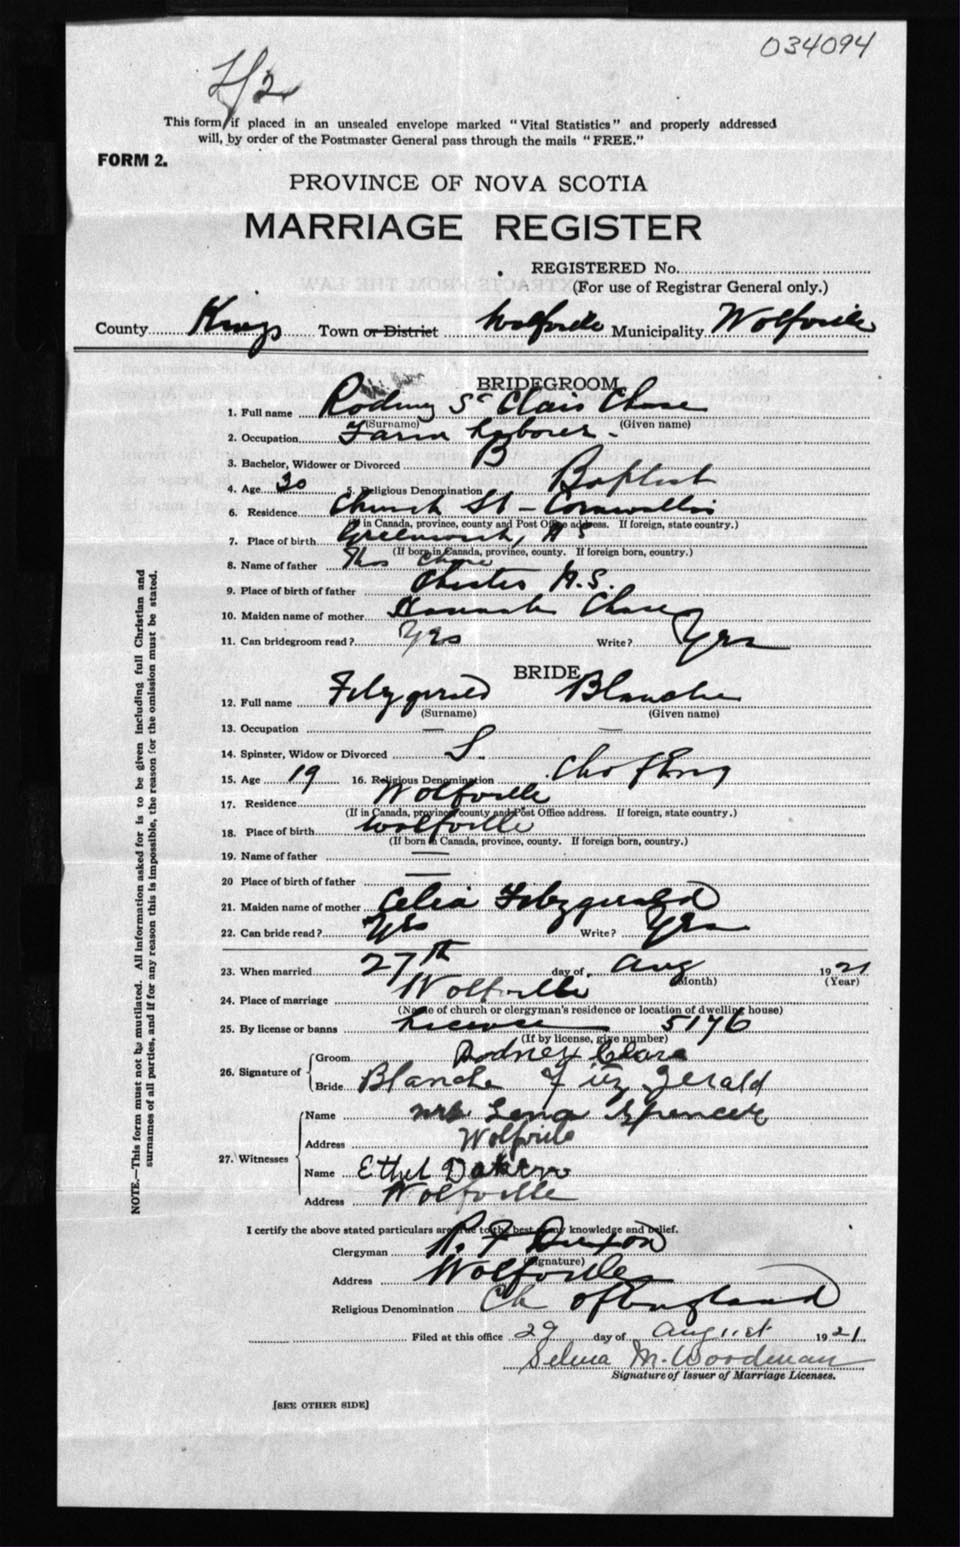 034094
This form if placed in an unsealed envelope marked "Vital Statistics" and properly addressed
will, by order of the Postmaster General pass through the mails "FREE."
FORM 2.
PROVINCE OF NOVA SCOTIA
MARRIAGE REGISTER
REGISTERED No.
(For use of Registrar General only.)
County Kings Town or District Wolfville Municipality Wolfville
BRIDEGROOM
1. Full name Rodney St Clair Chase
(Surname) (Given name)
2. Occupation Farm Laborer
3. Bachelor, Widower or Divorced B
4. Age 30 5. Religious Denomination Baptist
6. Residence Church St - Cornwallis
(If in Canada, province, county and Post Office address. If foreign, state country.)
7. Place of birth Greenwich, N S
(If born in Canada, province, county. If foreign born, country.)
8. Name of father Thos Chase
9. Place of birth of father Chester N.S.
10. Maiden name of mother Hannah Chase
11. Can bridegroom read? Yes Write? Yes
BRIDE
12. Full name Fitzgerald Blanche
(Surname) (Given name)
13. Occupation — —
14. Spinster, Widow or Divorced S.
15. Age 19 16. Religious Denomination Ch of Eng
17. Residence Wolfville
(If in Canada, province, county and Post Office address. If foreign, state country.)
18. Place of birth Wolfville
(If born in Canada, province, county. If foreign born, country.)
19. Name of father —
20 Place of birth of father —
21. Maiden name of mother Celia Fitzgerald
22. Can bride read? Yes Write? Yes
23. When married 27th day of Aug 1921
(Month) (Year)
24. Place of marriage Wolfville
(Name of church or clergyman's residence or location of dwelling house)
25. By license or banns License 5176
(If by license, give number)
26. Signature of Groom Rodney
Bride Blanche Fitz Gerald
27. Witnesses Name Mrs Lena Spencer
Address Wolfville
Name Ethel
Address Wolfville
I certify the above stated particulars are true to the best of my knowledge and belief.
Clergyman R. F. Dixon
(Signature)
Address Wolfville
Religious Denomination Ch of England
Filed at this office 29 day of August 1921
Selma M. Woodman
Signature of Issuer of Marriage Licenses.
[SEE OTHER SIDE]
NOTE.—This form must not be mutilated. All information asked for is to be given including full Christian and
surnames of all parties, and if for any reason this is impossible, the reason for the omission must be stated.